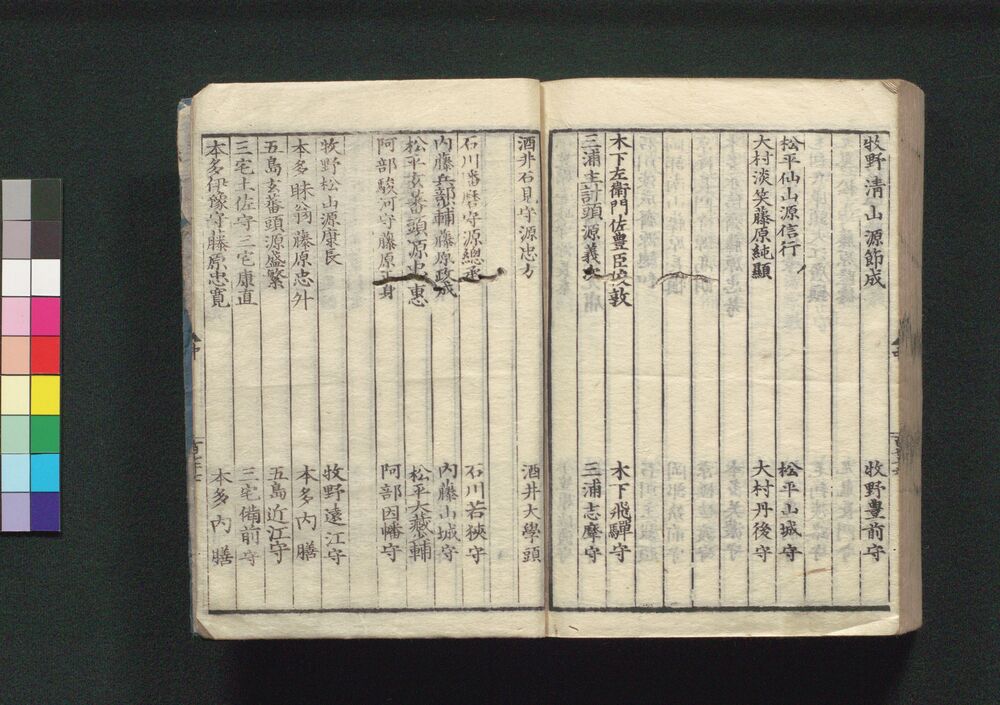 牧野清山源節成　牧野豊前守
松平仙山源信行　松平山城守
大村淡笑藤原純顯　大村丹後守
木下左衛門佐豊臣俊敦　木下飛騨守
三浦主計頭源義次　三浦志摩守
酒井石見守源忠方　酒井大學頭
石川播磨守源總承　石川若狹守
内藤兵部輔藤原政成　内藤山城守
松平玄蕃頭源忠惠　松平大藏輔
阿部駿河守藤原正身　阿部因幡守
牧野松山源康長　牧野遠江守
本多眛翁藤原忠外　本多内膳
五島玄蕃頭源盛繁　五島近江守
三宅土佐守三宅康直　三宅備前守
本多伊豫守藤原忠寛　本多内膳